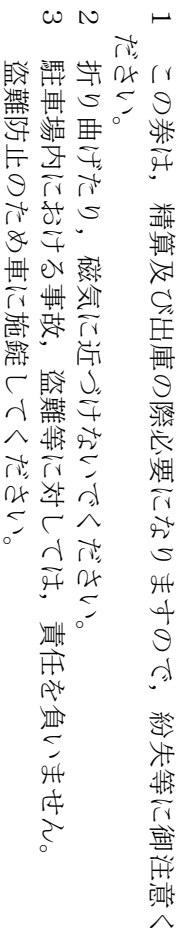 1　この券は，精算及び出庫の際必要になりますので，紛失等に御注意く
ださい。
2　折り曲げたり，磁気に近づけないでください。
3　駐車場内における事故，盗難等に対しては，責任を負いません。
盗難防止のため車に施錠してください。